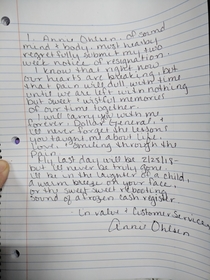 I, Anne Ohlsen, of sound
mind & body, must hereby
regretfully submit my two
week notice of resignation.
I know that right now
our hearts are breaking, but
that pain will dull with time
until we are left with nothing
but sweet & wistful memories
of our time together.
I will carry you with me
forever, Dollar General. I
will never forget the lessons
you taught me about life,
love, & smiling through the
pain.
My last day will be 2/23/18-
but I'll never be truly gone.
I'll be in the laughter of a child,
a warm breeze on your face,
or the sweet sweet rebooting
sound of a frozen cash register
In value & customer service,
Anne Ohlsen